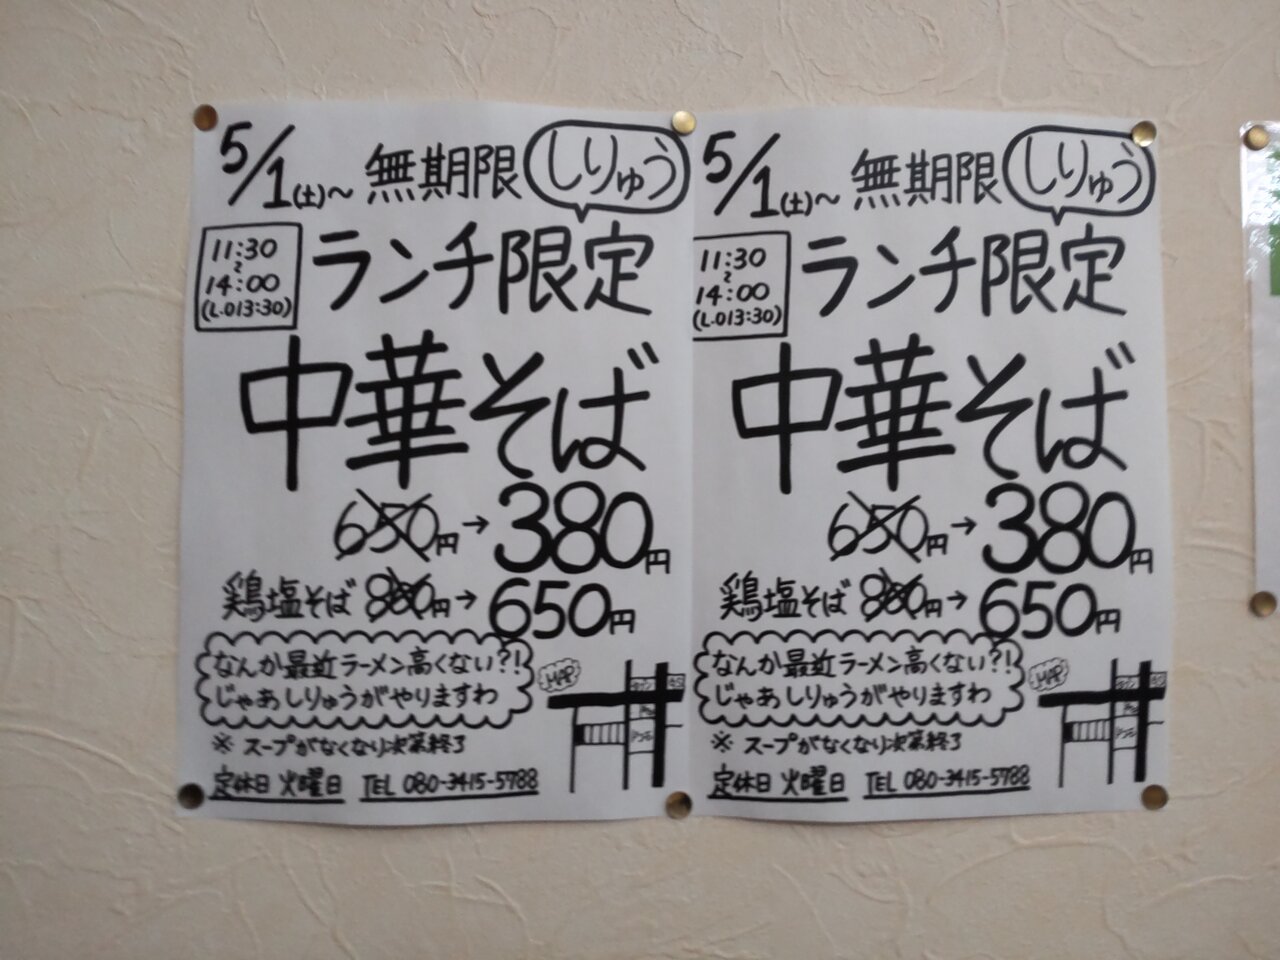 5/1(土)～ 無期限 しりゅう
11:30
～
14:00
(L.O13:30)
ランチ限定
中華そば
650円→380円
鶏塩そば 880円→650円
なんか最近ラーメン高くない?!
じゃあしりゅうがやりますわ
MAP
※スープがなくなり次第終了
定休日 火曜日 TEL 080-3415-5788
5/1(土)～ 無期限 しりゅう
11:30
～
14:00
(L.O13:30)
ランチ限定
中華そば
650円→380円
鶏塩そば 880円→650円
なんか最近ラーメン高くない?!
じゃあしりゅうがやりますわ
MAP
※スープがなくなり次第終了
定休日 火曜日 TEL 080-3415-5788